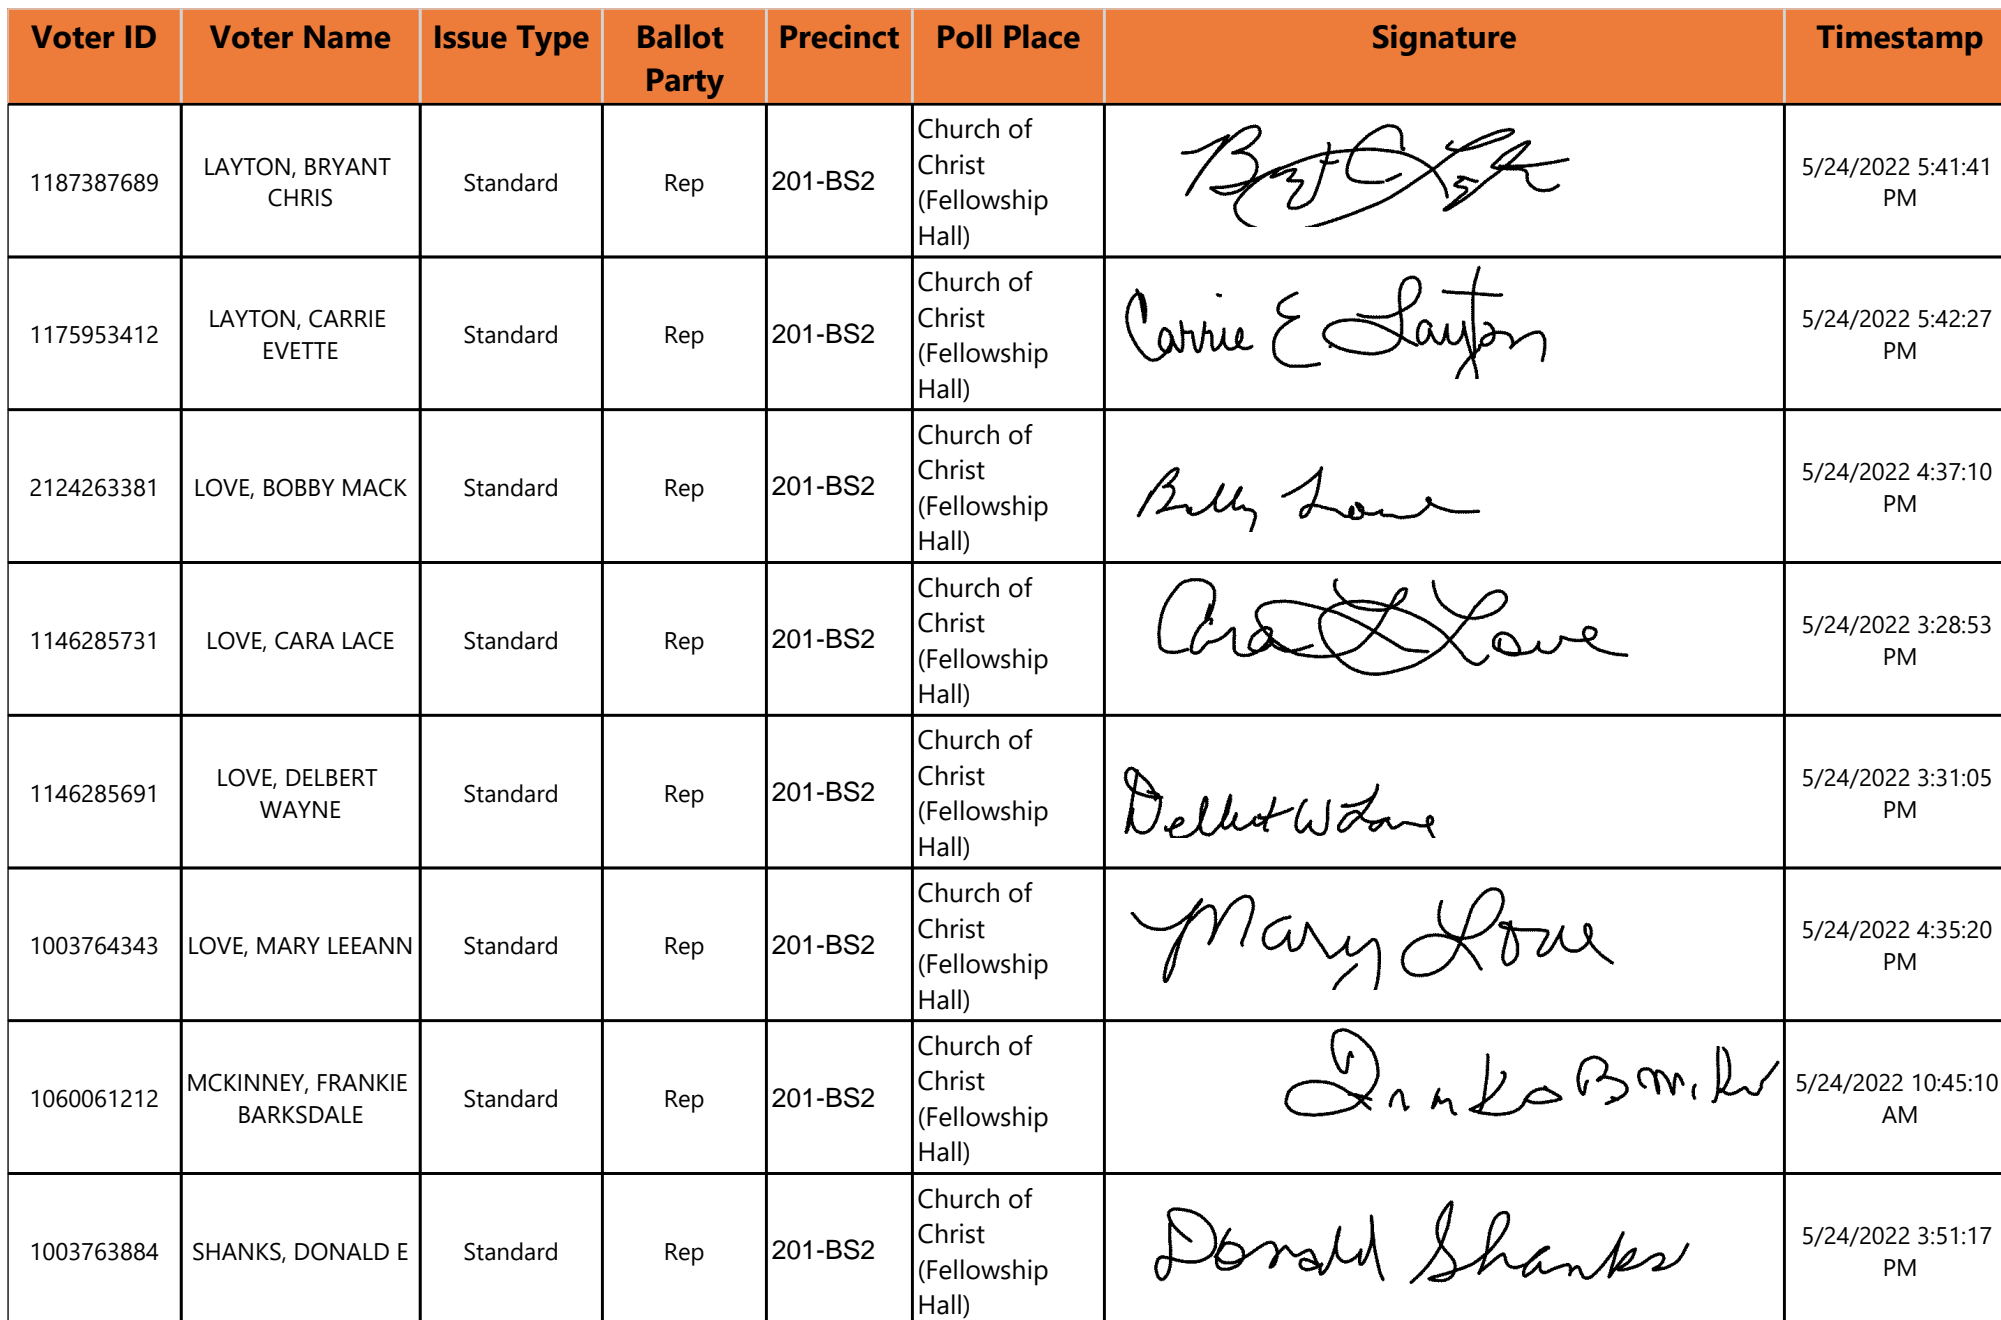 Voter ID Voter Name Issue Type Ballot Party Precinct Poll Place Signature Timestamp
1187387689 LAYTON, BRYANT CHRIS Standard Rep 201-BS2 Church of Christ (Fellowship Hall) 5/24/2022 5:41:41 PM
1175953412 LAYTON, CARRIE EVETTE Standard Rep 201-BS2 Church of Christ (Fellowship Hall) Carrie E Layton 5/24/2022 5:42:27 PM
2124263381 LOVE, BOBBY MACK Standard Rep 201-BS2 Church of Christ (Fellowship Hall) Love 5/24/2022 4:37:10 PM
1146285731 LOVE, CARA LACE Standard Rep 201-BS2 Church of Christ (Fellowship Hall) Cara L Love 5/24/2022 3:28:53 PM
1146285691 LOVE, DELBERT WAYNE Standard Rep 201-BS2 Church of Christ (Fellowship Hall) Delbert W Love 5/24/2022 3:31:05 PM
1003764343 LOVE, MARY LEEANN Standard Rep 201-BS2 Church of Christ (Fellowship Hall) Mary Love 5/24/2022 4:35:20 PM
1060061212 MCKINNEY, FRANKIE BARKSDALE Standard Rep 201-BS2 Church of Christ (Fellowship Hall) 5/24/2022 10:45:10 AM
1003763884 SHANKS, DONALD E Standard Rep 201-BS2 Church of Christ (Fellowship Hall) Donald Shanks 5/24/2022 3:51:17 PM